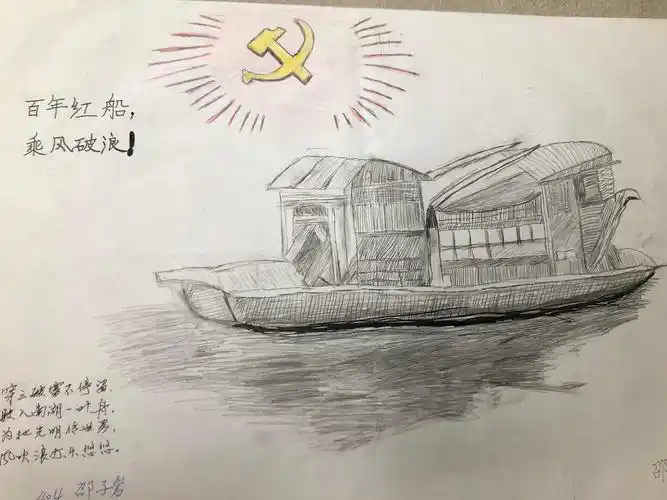 百年红船，
乘风破浪！
穿云破雾不停留，
驶入南湖一叶舟，
为把光明传世界，
风吹浪打乐悠悠。
404 邵子岩
邵